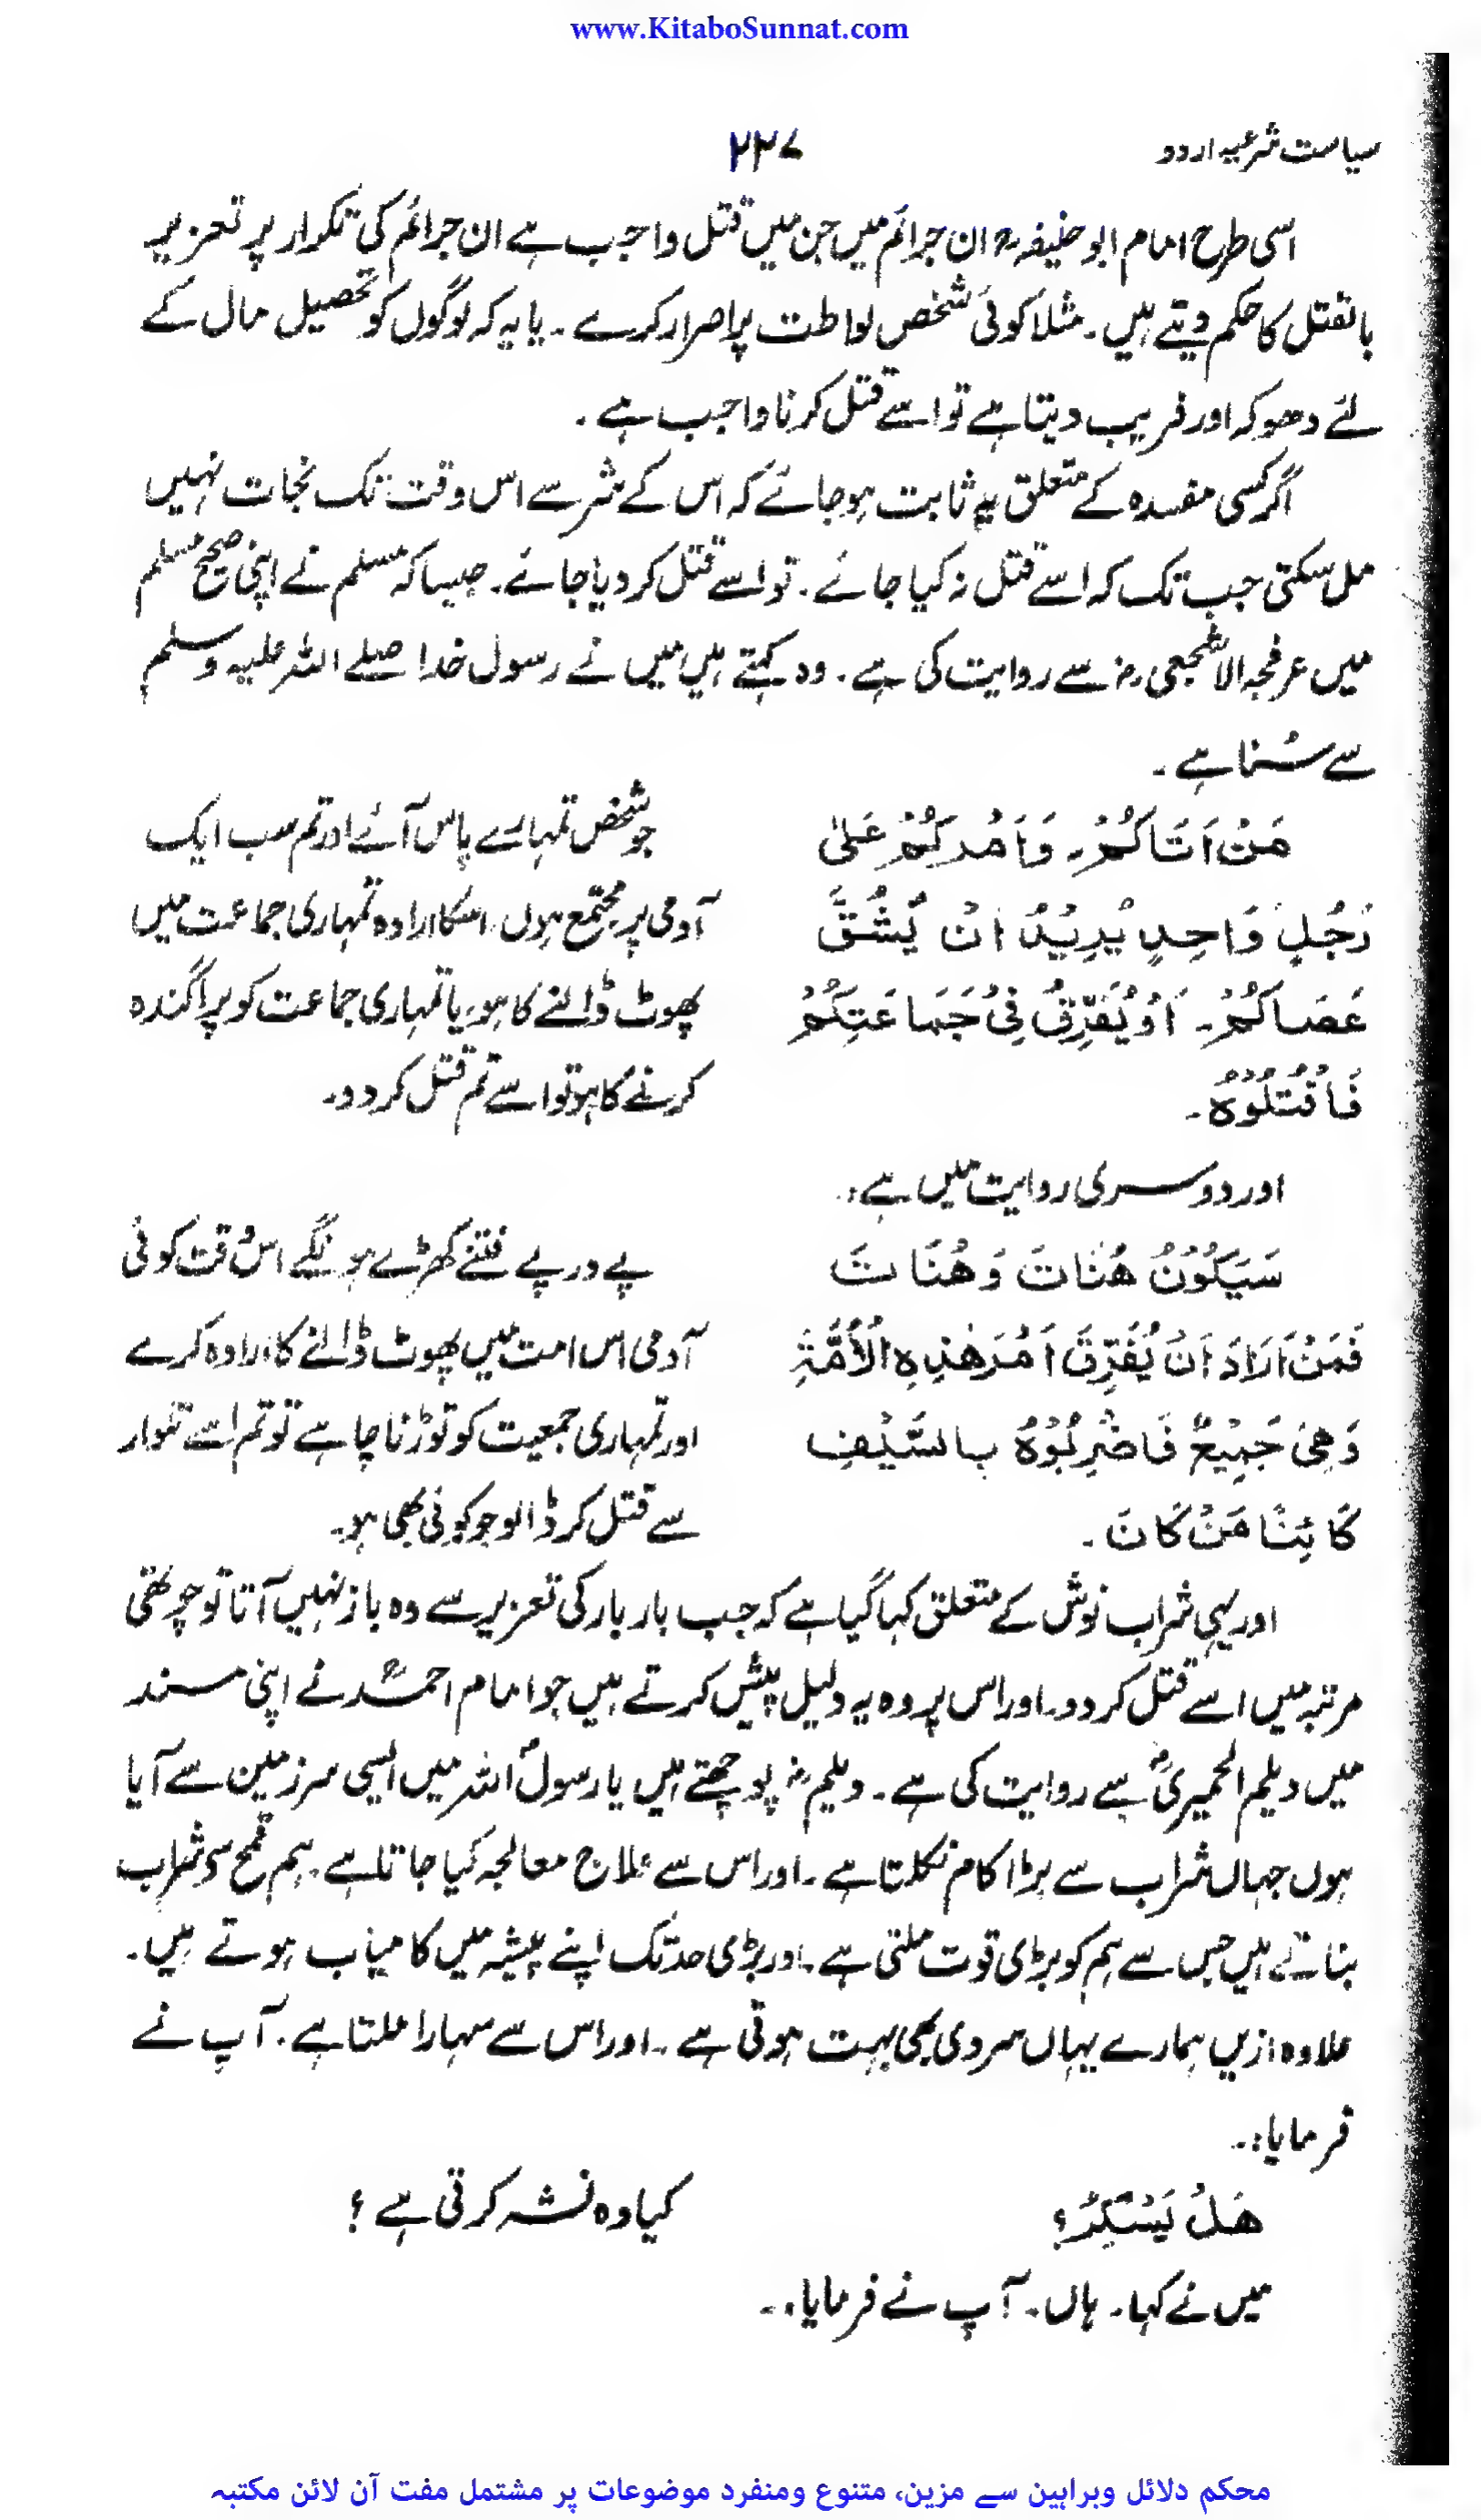 www.KitaboSunnat.com
سیاست شرعیہ اردو
۲۳۷
اسی طرح امام ابو حنیفہ رہ ان جرائم میں جن میں قتل واجب ہے ان جرائم کی تکرار پر تعزیر
بالقتل کا حکم دیتے ہیں۔ مثلا کوئی شخص لواطت پر اصرار کرے۔ یا یہ کہ لوگوں کو تحصیل مال کے
لئے دھوکہ اور فریب دیتا ہے تو اسے قتل کرنا واجب ہے۔
اگر کسی مفسدہ کے متعلق یہ ثابت ہو جائے کہ اس کے شر سے اس وقت تک نجات نہیں
مل سکتی جب تک کہ اسے قتل نہ کیا جائے۔ تو اسے قتل کر دیا جائے۔ جیسا کہ مسلم نے اپنی صحیح مسلم
میں عرفجہ الاشجعی رضہ سے روایت کی ہے۔ وہ کہتے ہیں میں نے رسول خدا صلے اللہ علیہ وسلم
سے سُنا ہے۔
مَنْ اَتَاكُمْ۔ وَاَمْرُكُمْ عَلىٰ
رَجُلٍ وَاحِدٍ يُرِيْدُ اَنْ يَّشُقَّ
عَصَاكُمْ۔ اَوْ يُفَرِّقَ فِيْ جَمَاعَتِكُمْ
فَاقْتُلُوْهُ۔
جو شخص تمہارے پاس آئے اور تم سب ایک
آدمی پر مجتمع ہوں، اسکا ارادہ تمہاری جماعت میں
پھوٹ ڈالنے کا ہو، یا تمہاری جماعت کو پراگندہ
کرنے کا ہو تو اسے تم قتل کر دو۔
اور دوسری روایت میں ہے:
سَيَكُوْنُ هَنَاتَ وَهَنَاتَ
فَمَنْ اَرَادَ اَنْ يُفَرِّقَ اَمْرَ هٰذِهِ الْاُمَّةِ
وَهِيَ جَمِيْعٌ فَاضْرِبُوْهُ بِالسَّيْفِ
كَائِنًا مَنْ كَانَ۔
پے در پے فتنے کھڑے ہونگے اس وقت کوئی
آدمی اس امت میں پھوٹ ڈالنے کا ارادہ کرے
اور تمہاری جمعیت کو توڑنا چاہے تو تم اسے تلوار
سے قتل کر ڈالو جو کوئی بھی ہو۔
اور یہی شراب نوش کے متعلق کہا گیا ہے کہ جب بار بار کی تعزیر سے وہ باز نہیں آتا تو چوتھی
مرتبہ میں اسے قتل کر دو۔ اور اس پر وہ یہ دلیل پیش کرتے ہیں جو امام احمدؒ نے اپنی مسند
میں دیلم الحمیریؓ سے روایت کی ہے۔ دیلم رضہ پوچھتے ہیں یا رسول اللہ میں ایسی سرزمین سے آیا
ہوں جہاں شراب سے بڑا کام نکلتا ہے۔ اور اس سے علاج معالجہ کیا جاتا ہے۔ ہم قمح سے شراب
بناتے ہیں جس سے ہم کو بڑی قوت ملتی ہے۔ اور بڑی حد تک اپنے پیشہ میں کامیاب ہوتے ہیں۔
علاوہ ازیں ہمارے یہاں سردی بھی بہت ہوتی ہے۔ اور اس سے سہارا ملتا ہے۔ آپ نے
فرمایا:۔
هَلْ يُسْكِرُ؟
کیا وہ نشہ کرتی ہے؟
میں نے کہا۔ ہاں۔ آپ نے فرمایا:۔
محکم دلائل وبراہین سے مزین، متنوع ومنفرد موضوعات پر مشتمل مفت آن لائن مکتبہ